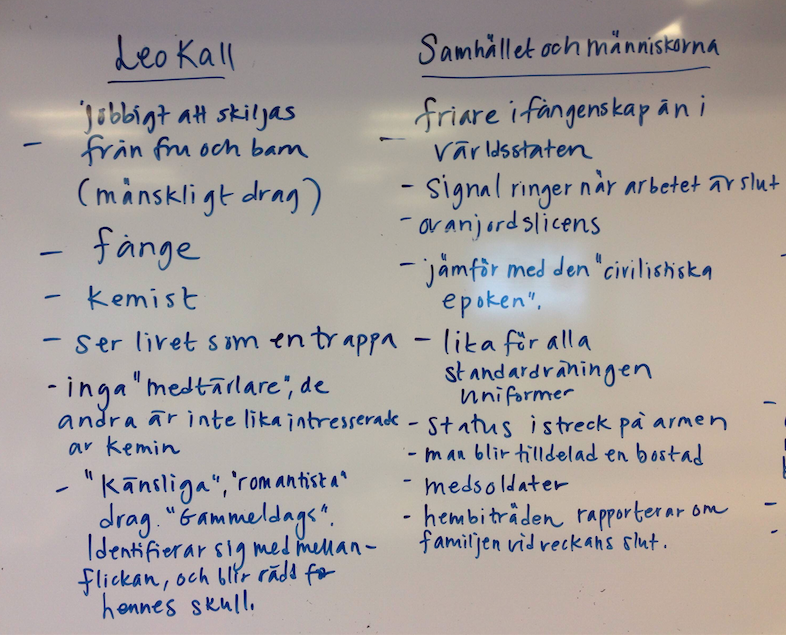 Leo Kall
jobbigt att skiljas
- från fru och barn
(mänskligt drag)
- fånge
- Kemist
- ser livet som en trappa
- inga "medtärlare", de
andra är inte lika intresserade
av Kemin
- "Känsliga", "romantiska"
drag. "Gammeldags".
Identifierar sig med mellan-
flickan, och blir rädd för
hennes skull.
Samhället och människorna
friare i fångenskap än i
- världsstaten
- Signal ringer när arbetet är slut
- ovanjordslicens
- jämför med den "civilistiska
epoken".
- lika för alla
standardvåningen
uniformer
- Status i streck på armen
- man blir tilldelad en bostad
- medsoldater
- hembiträden rapporterar om
familjen vid veckans slut.